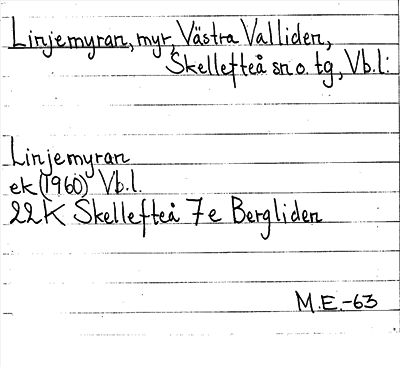 Linjemyran, myr, Västra Valliden,
Skellefteå sn o. tg, Vb.l.
Linjemyran
ek (1960) Vb.l.
22K Skellefteå 7e Bergliden
M.E.-63